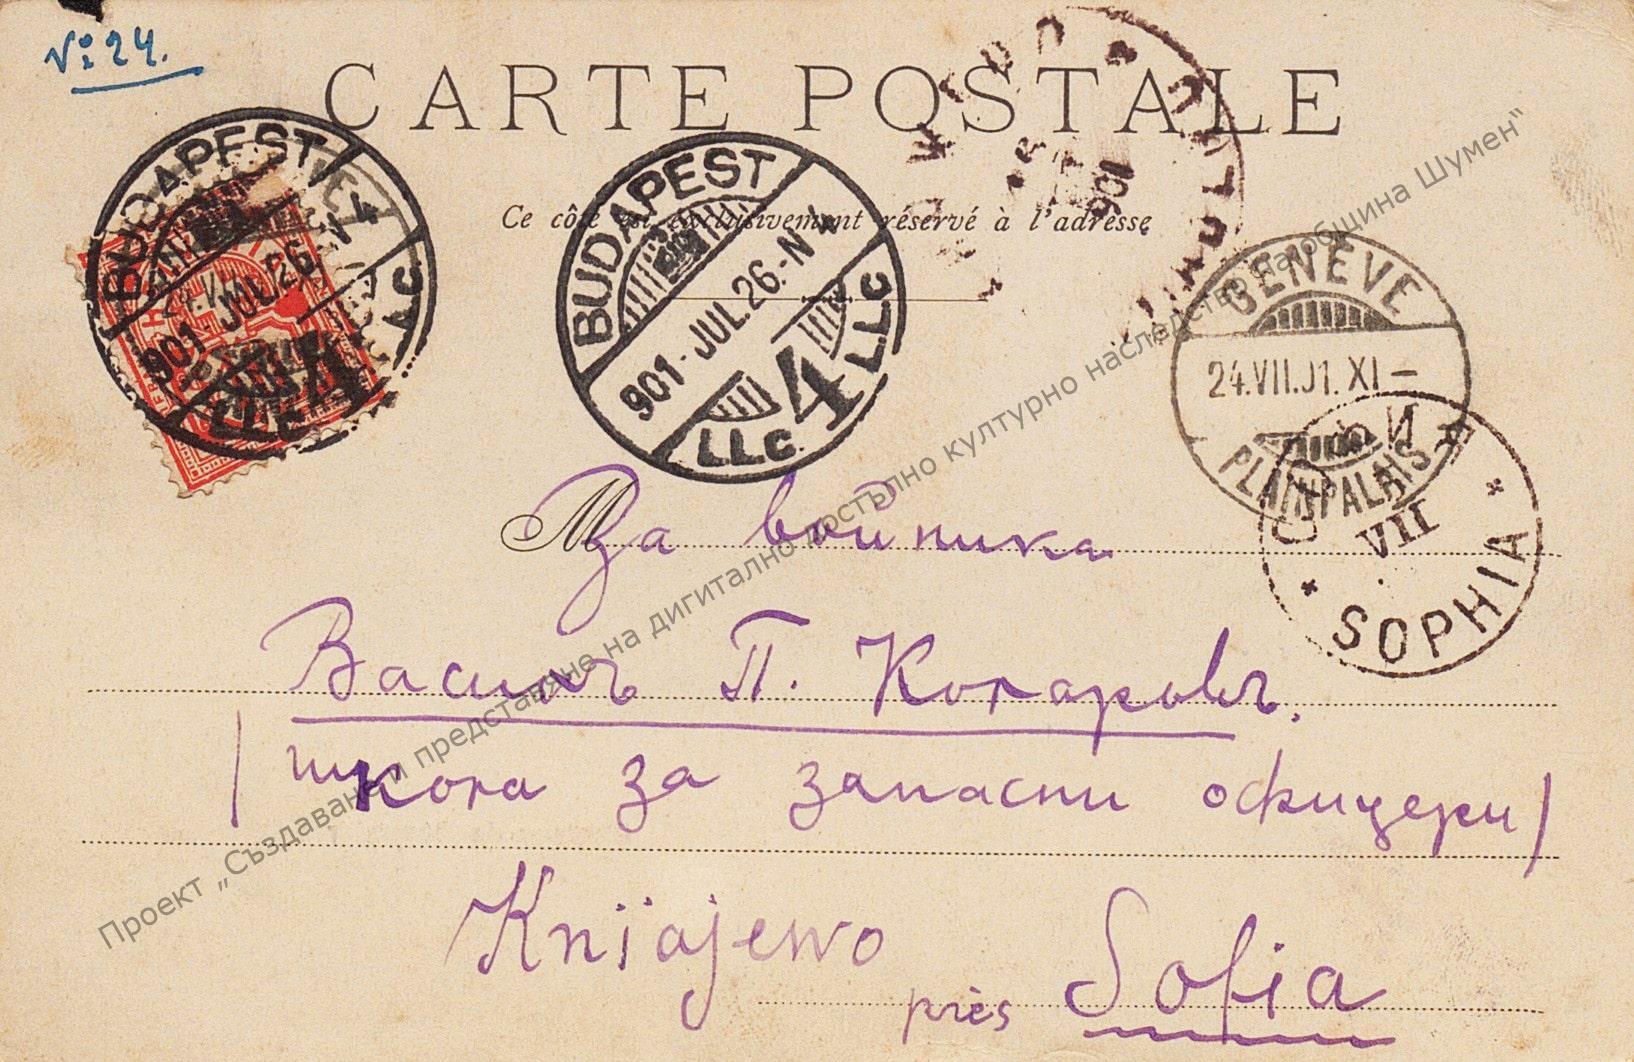 № 24.
CARTE POSTALE
Ce côté est exclusivement réservé à l'adresse
BUDAPEST 4
901 JUL. 26
LLC
BUDAPEST
901 · JUL. 26. - N 4
LLC 4 LLC
901
GENÈVE
24.VII.01. XI –
PLAINPALAIS
VII
SOPHIA
M За войника
Василъ П. Коларовъ.
/школа за запасни офицери/
Knïajewo
près Sofia
Проект „Създаване и представяне на дигитално достъпно културно наследство на Община Шумен“